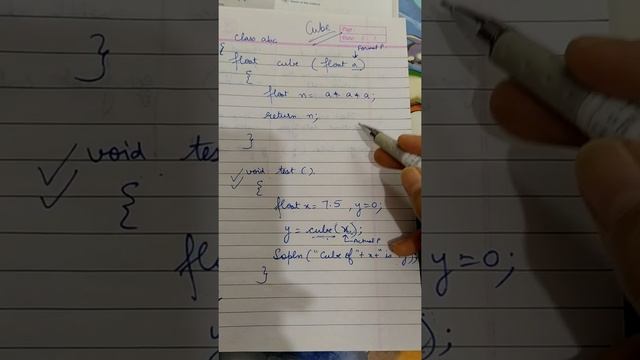 Cube
Page:
Date: / /
class abc
{
Formal P
float cube (float a)
{
float n = a * a * a;
return n;
}
void test ()
{
float x = 7.5, y = 0;
y = cube(x);
Actual P
Sopln ("Cube of" + x + "is
}
}
void tes
{
flo
y = 0;
y